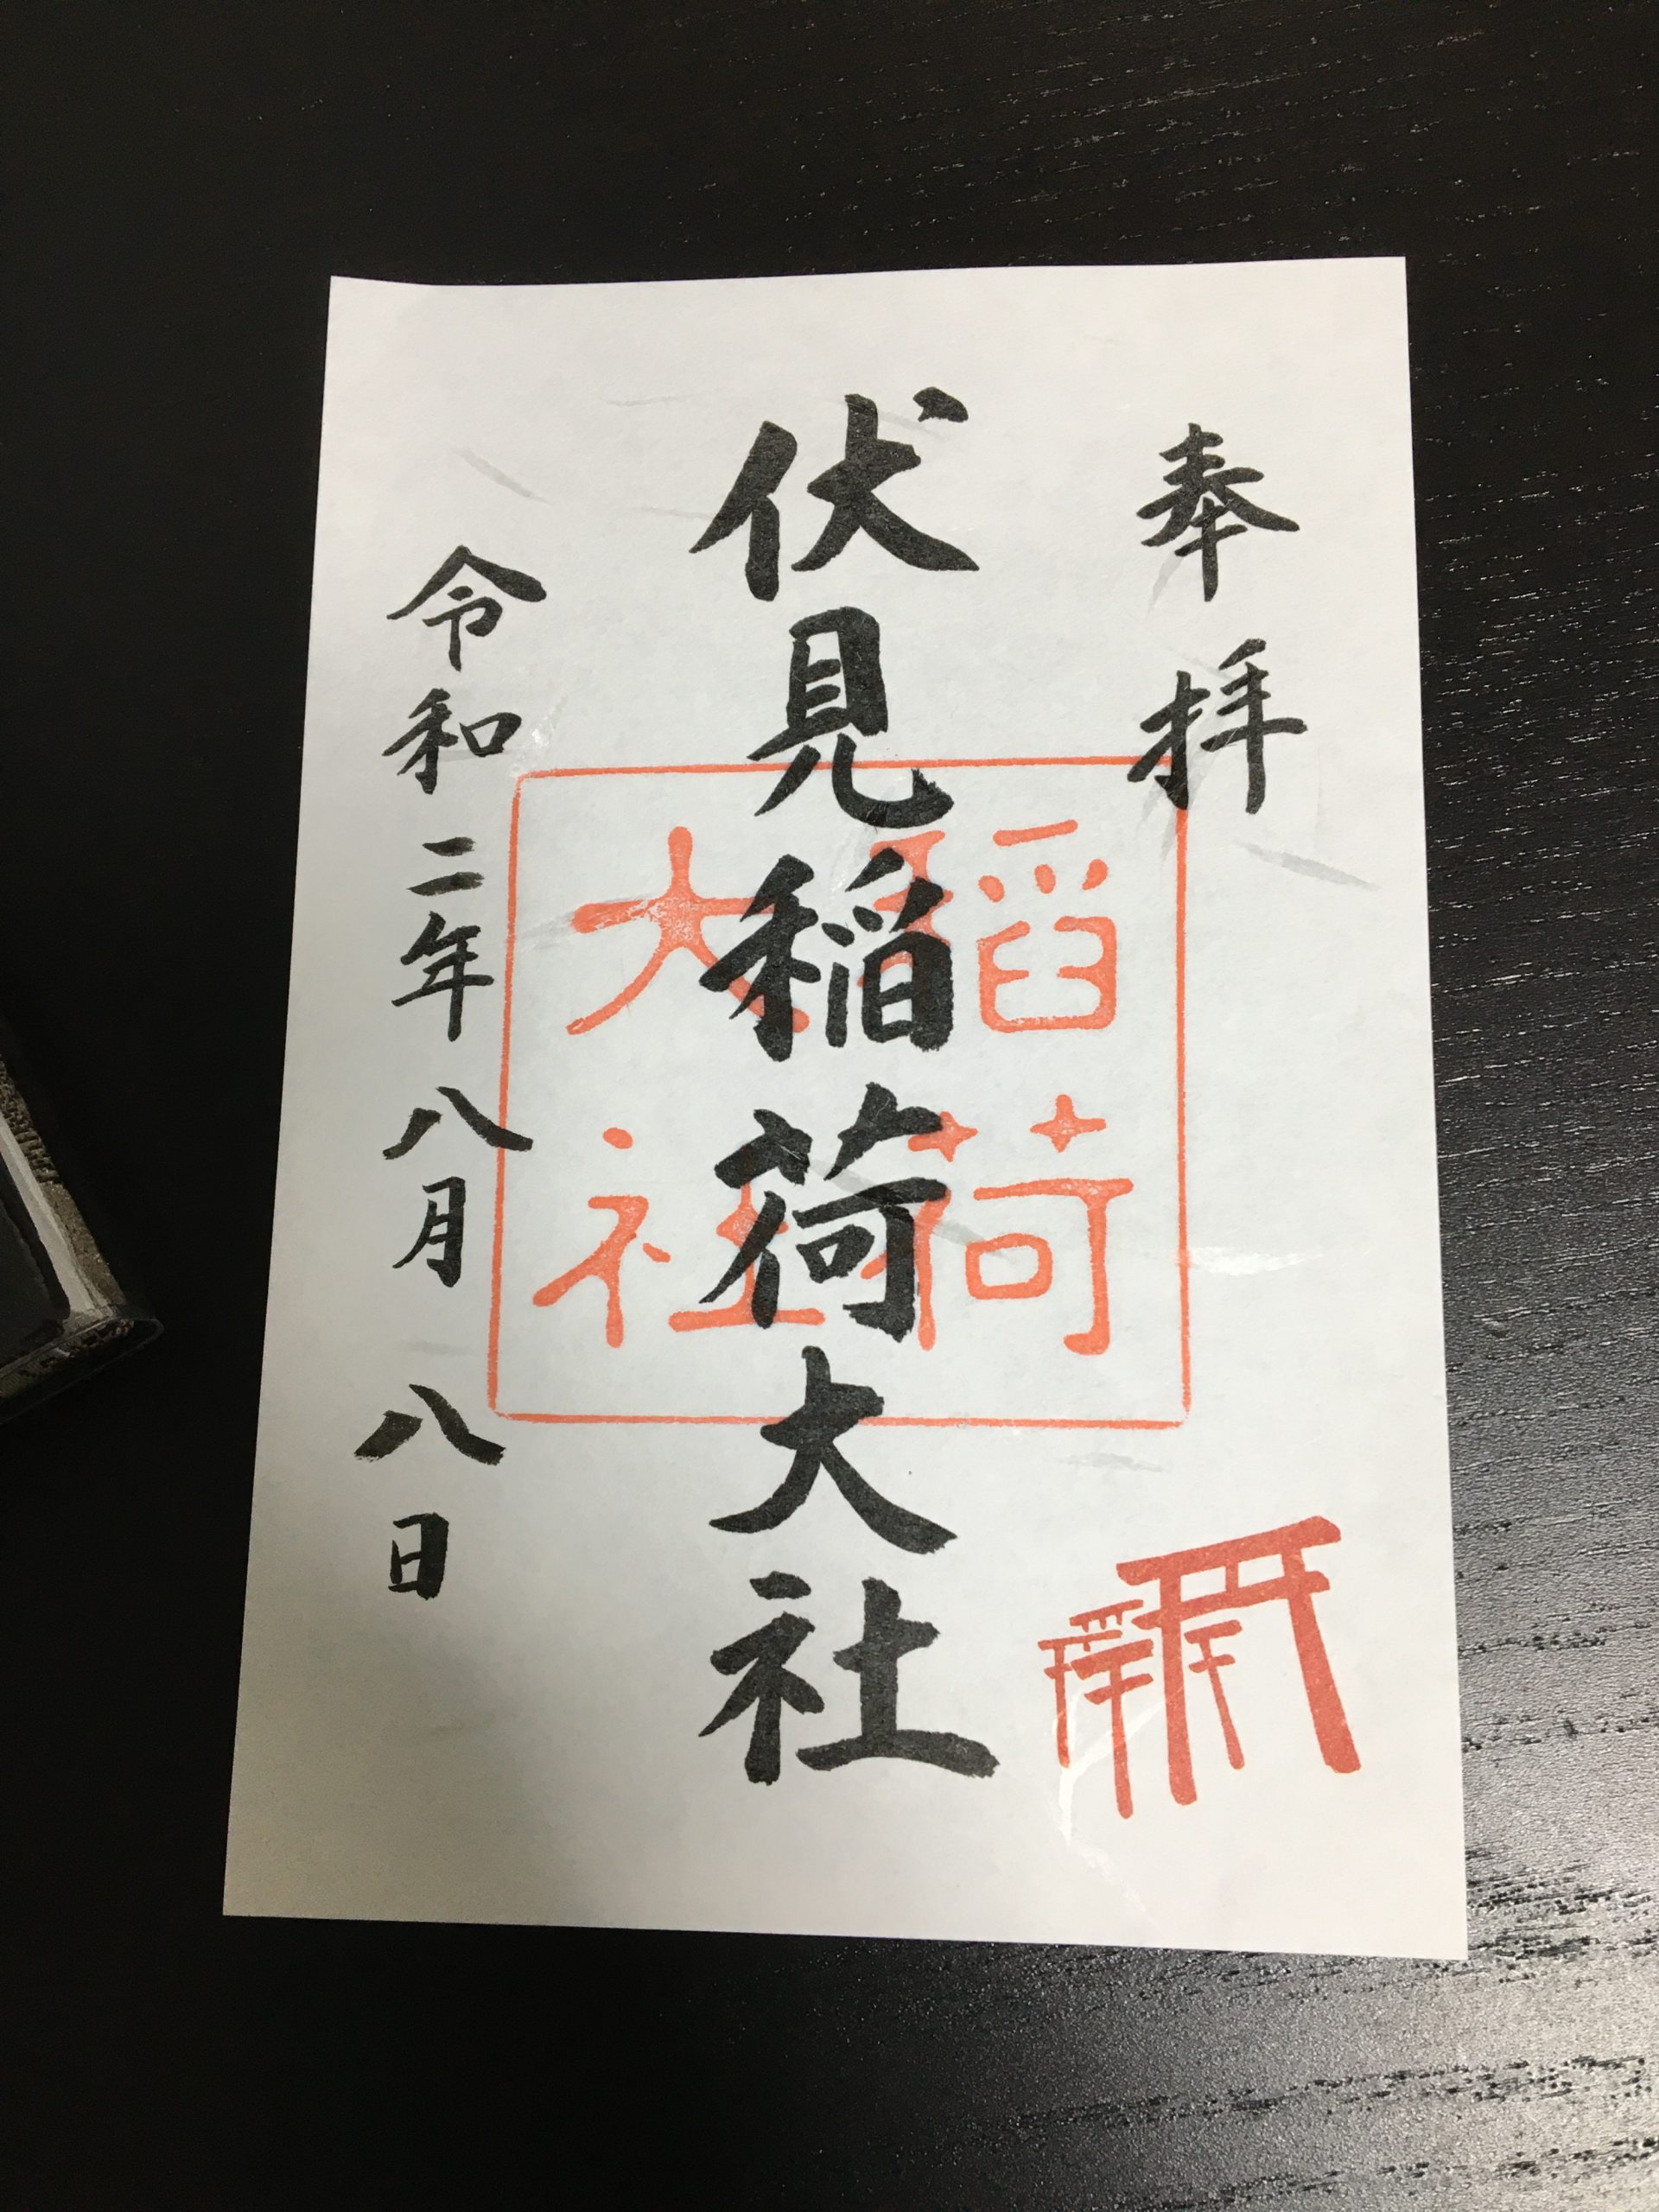 奉拝
伏見稲荷大社
稲荷
大社
令和二年八月八日